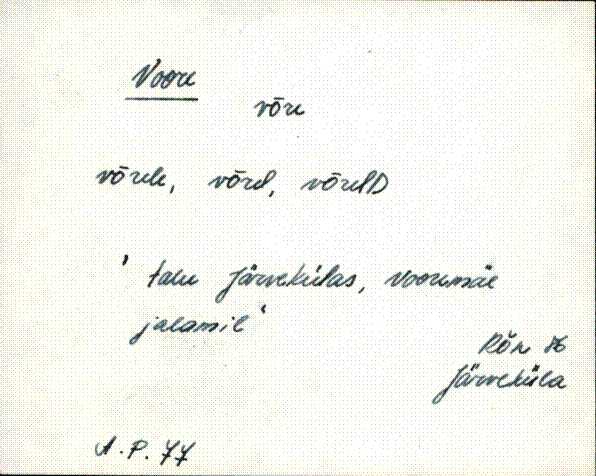 Voore
võre
võrele, võrel, võrelD
' talu Järvekülas, Vooremäe
jalamil '
Rõn
Järveküla
A. P. 77